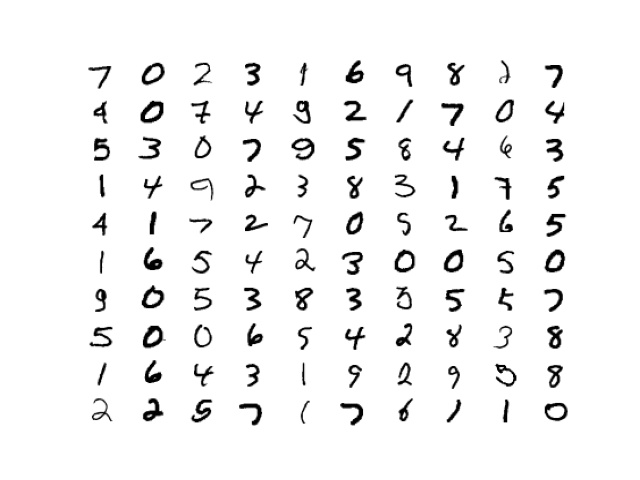 7 0 2 3 1 6 9 8 2 7
4 0 7 4 9 2 1 7 0 4
5 3 0 7 9 5 8 4 6 3
1 4 9 2 3 8 3 1 7 5
4 1 7 2 7 0 5 2 6 5
1 6 5 4 2 3 0 0 5 0
9 0 5 3 8 3 5 5 5 7
5 0 0 6 5 4 2 8 3 8
1 6 4 3 1 9 2 9 5 8
2 2 5 7 1 7 6 1 1 0